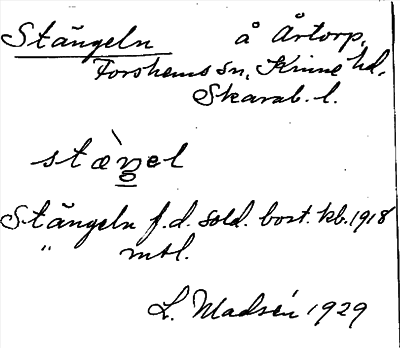 Stängeln å Årtorp,
Forshems sn, Kinne hd.
Skarab. l.
stæ̀ŋəl
Stängeln f.d. sold. bost. kb. 1918
" mtl.
L. Madsén 1929